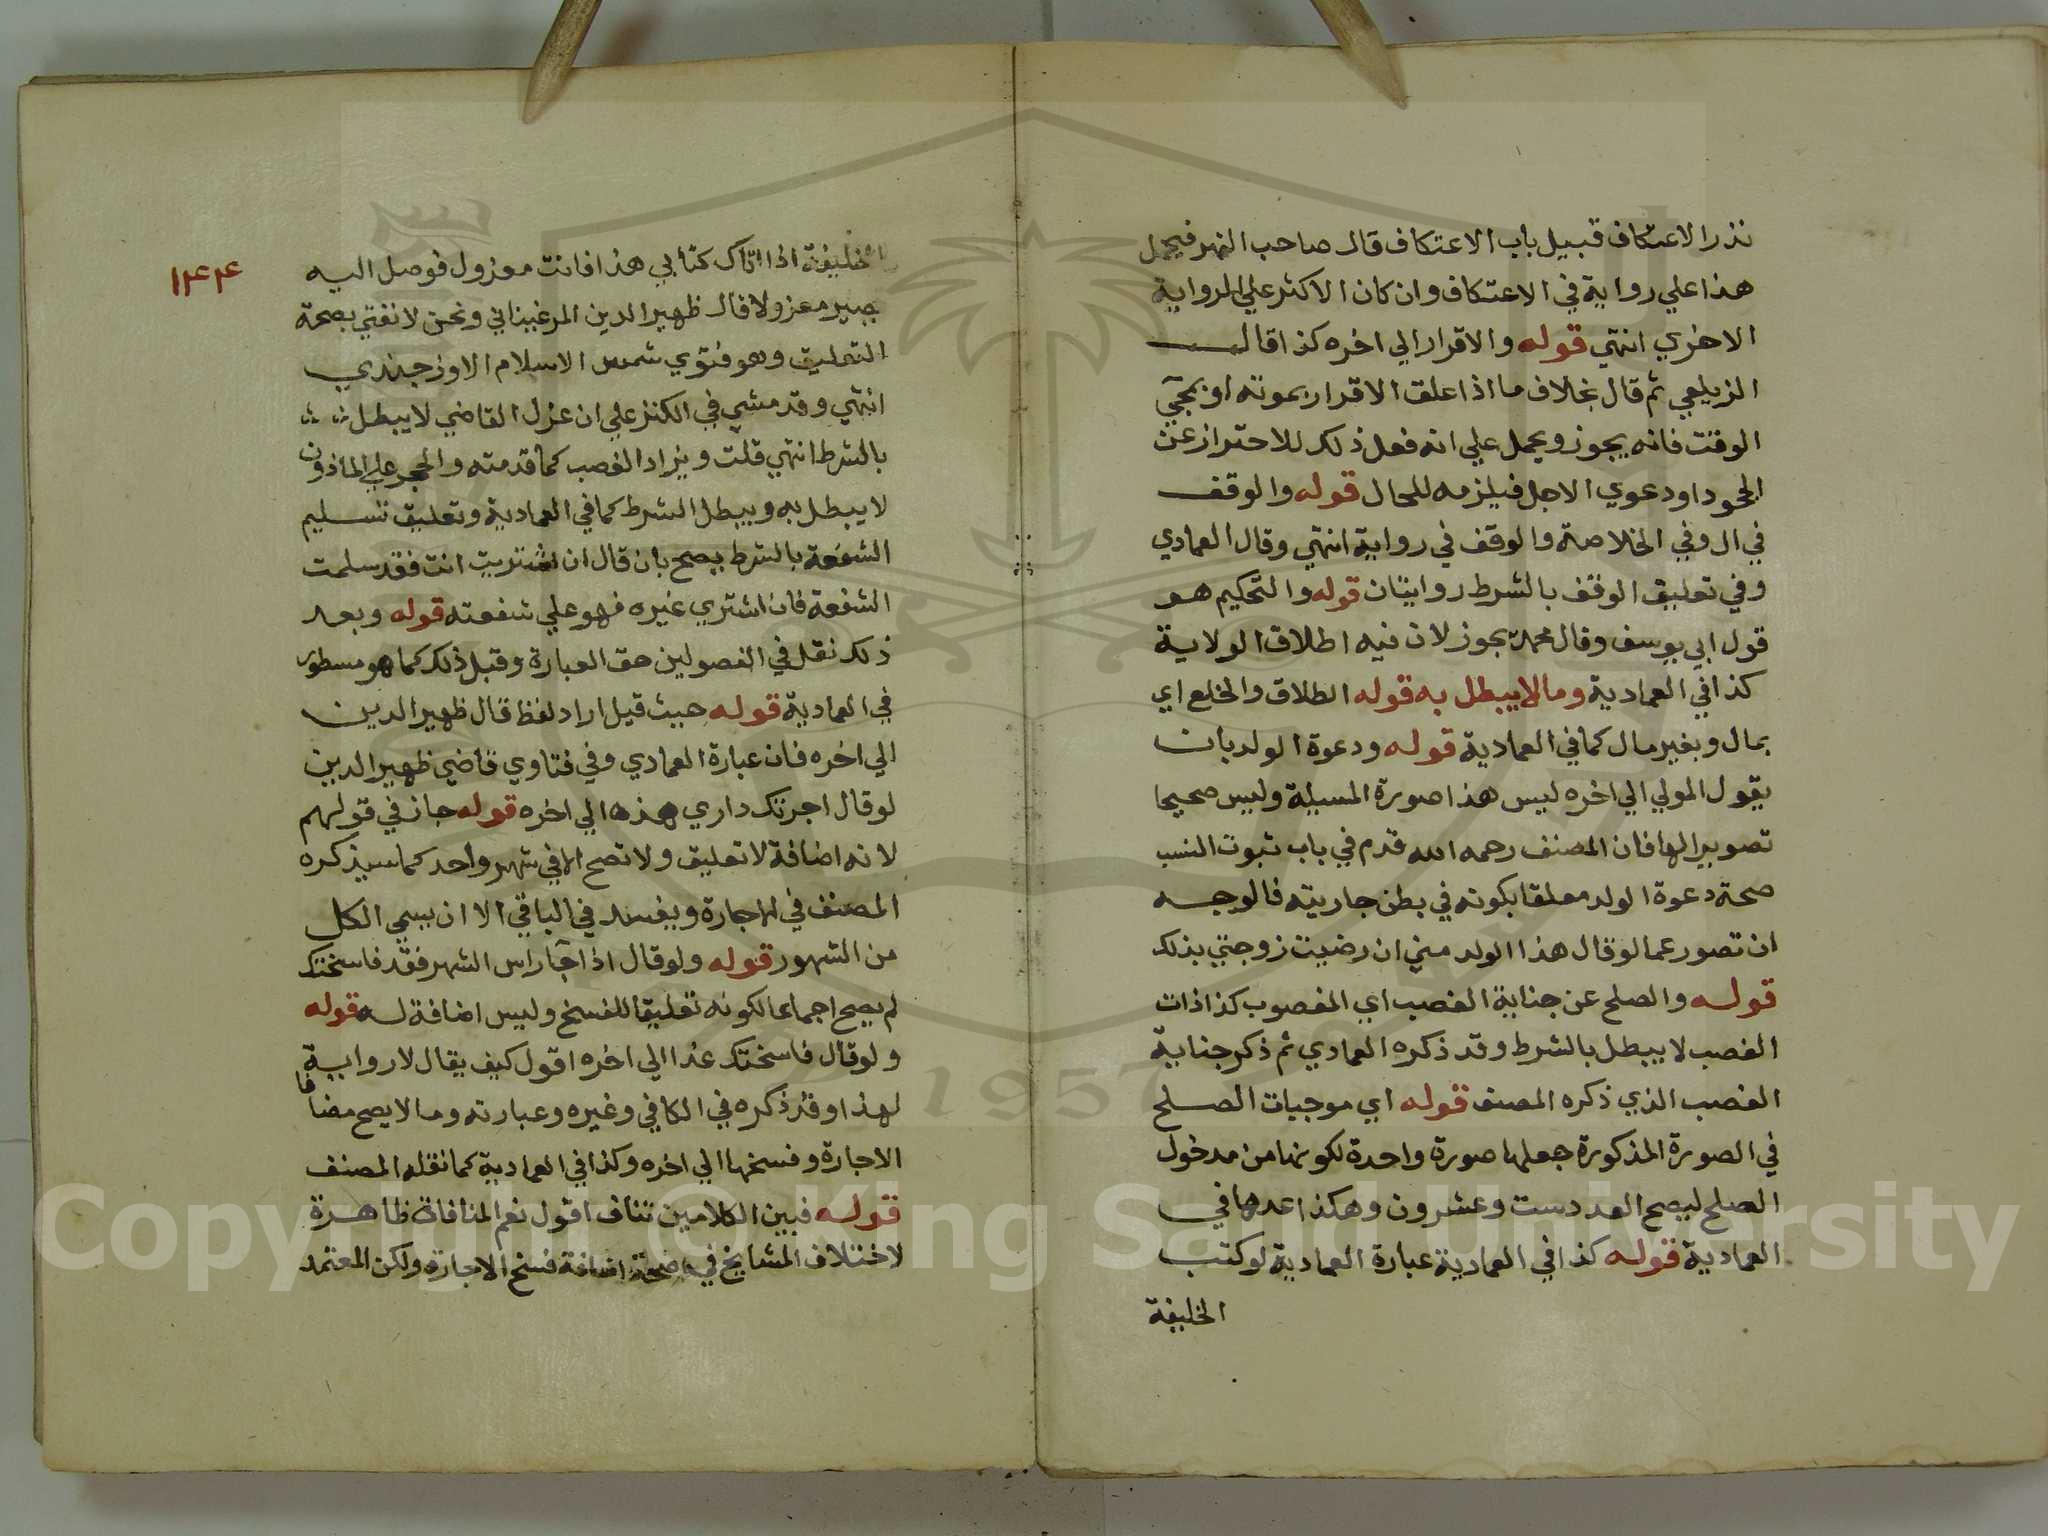 نذر الاعتكاف قبيل باب الاعتكاف قال صاحب النهر فيحمل
هذا علي رواية في الاعتكاف وان كان الاكثر علي الرواية
الاخري انتهي قوله والاقرار الي اخره كذا قال
الزيلعي ثم قال بخلاف ما اذا علق الاقرار بموته او بمجي
الوقت فانه يجوز ويحمل علي انه فعل ذلك للاحتراز عن
الجحود او دعوي الاجل فيلزمه للحال قوله والوقف
في ال وفي الخلاصة والوقف في رواية انتهي وقال العمادي
وفي تعليق الوقف بالشرط روايتان قوله والتحكيم هو
قول ابي يوسف وقال محمد يجوز لان فيه اطلاق الولاية
كذا في العمادية وما لا يبطل به قوله الطلاق والخلع اي
بمال وبغير مال كما في العمادية قوله ودعوة الولد بان
يقول المولي الي اخره ليس هذا صورة المسيلة وليس صحيحا
تصويرا لها فان المصنف رحمه الله قدم في باب ثبوت النسب
صحة دعوة الولد معلقا بكونه في بطن جاريته فالوجه
ان تصور عما لو قال هذا الولد مني ان رضيت زوجتي بذلك
قوله والصلح عن جناية الغصب اي المغصوب كذا ذات
الغصب لا يبطل بالشرط وقد ذكره العمادي ثم ذكر جناية
الغصب الذي ذكره المصنف قوله اي موجبات الصلح
في الصورة المذكورة جعلها صورة واحدة لكونها من مدخول
الصلح ليصح العدد ست وعشرون وهكذا عدها في
العمادية قوله كذا في العمادية عبارة العمادية لو كتب
الخليفة
١٤٤
الخليفة اذا اتاك كتابي هذا فانت معزول فوصل اليه
يصير معزولا قال ظهير الدين المرغيناني ونحن لا نفتي بصحة
التعليق وهو فتوي شمس الاسلام الاوزجندي
انتهي وقد مشي في الكنز علي ان عزل القاضي لا يبطل
بالشرط انتهي قلت ويزاد الغصب كما قدمته والحجر علي الماذون
لا يبطل به ويبطل الشرط كما في العمادية وتعليق تسليم
الشفعة بالشرط يصح بان قال ان اشتريت انت فقد سلمت
الشفعة فان اشتري غيره فهو علي شفعته قوله وبعد
ذلك نقل في الفصولين حق العبارة وقبل ذلك كما هو مسطور
في العمادية قوله حيث قيل اراد لفظ قال ظهير الدين
الي اخره فان عبارة العمادي وفي فتاوي قاضي ظهير الدين
لو قال اجرتك داري هذه الي اخره قوله جاز في قولهم
لانه اضافة لا تعليق ولا تصح الا في شهر واحد كما سيذكره
المصنف في الاجارة ويفسد في الباقي الا ان يسمي الكل
من الشهور قوله ولو قال اذا جا راس الشهر فقد فاسختك
لم يصح اجماعا لكونه تعليقا للفسخ وليس اضافة له قوله
ولو قال فاسختك غدا الي اخره اقول كيف يقال لا رواية
لهذا وقد ذكره في الكافي وغيره وعبارته وما لا يصح مضافا
الاجارة وفسخها الي اخره وكذا في العمادية كما نقله المصنف
قوله فبين الكلامين تناف اقول نعم المنافاة ظاهرة
لاختلاف المشايخ في صحة اضافة فسخ الاجارة ولكن المعتمد
Copyright © King Saud University
1957